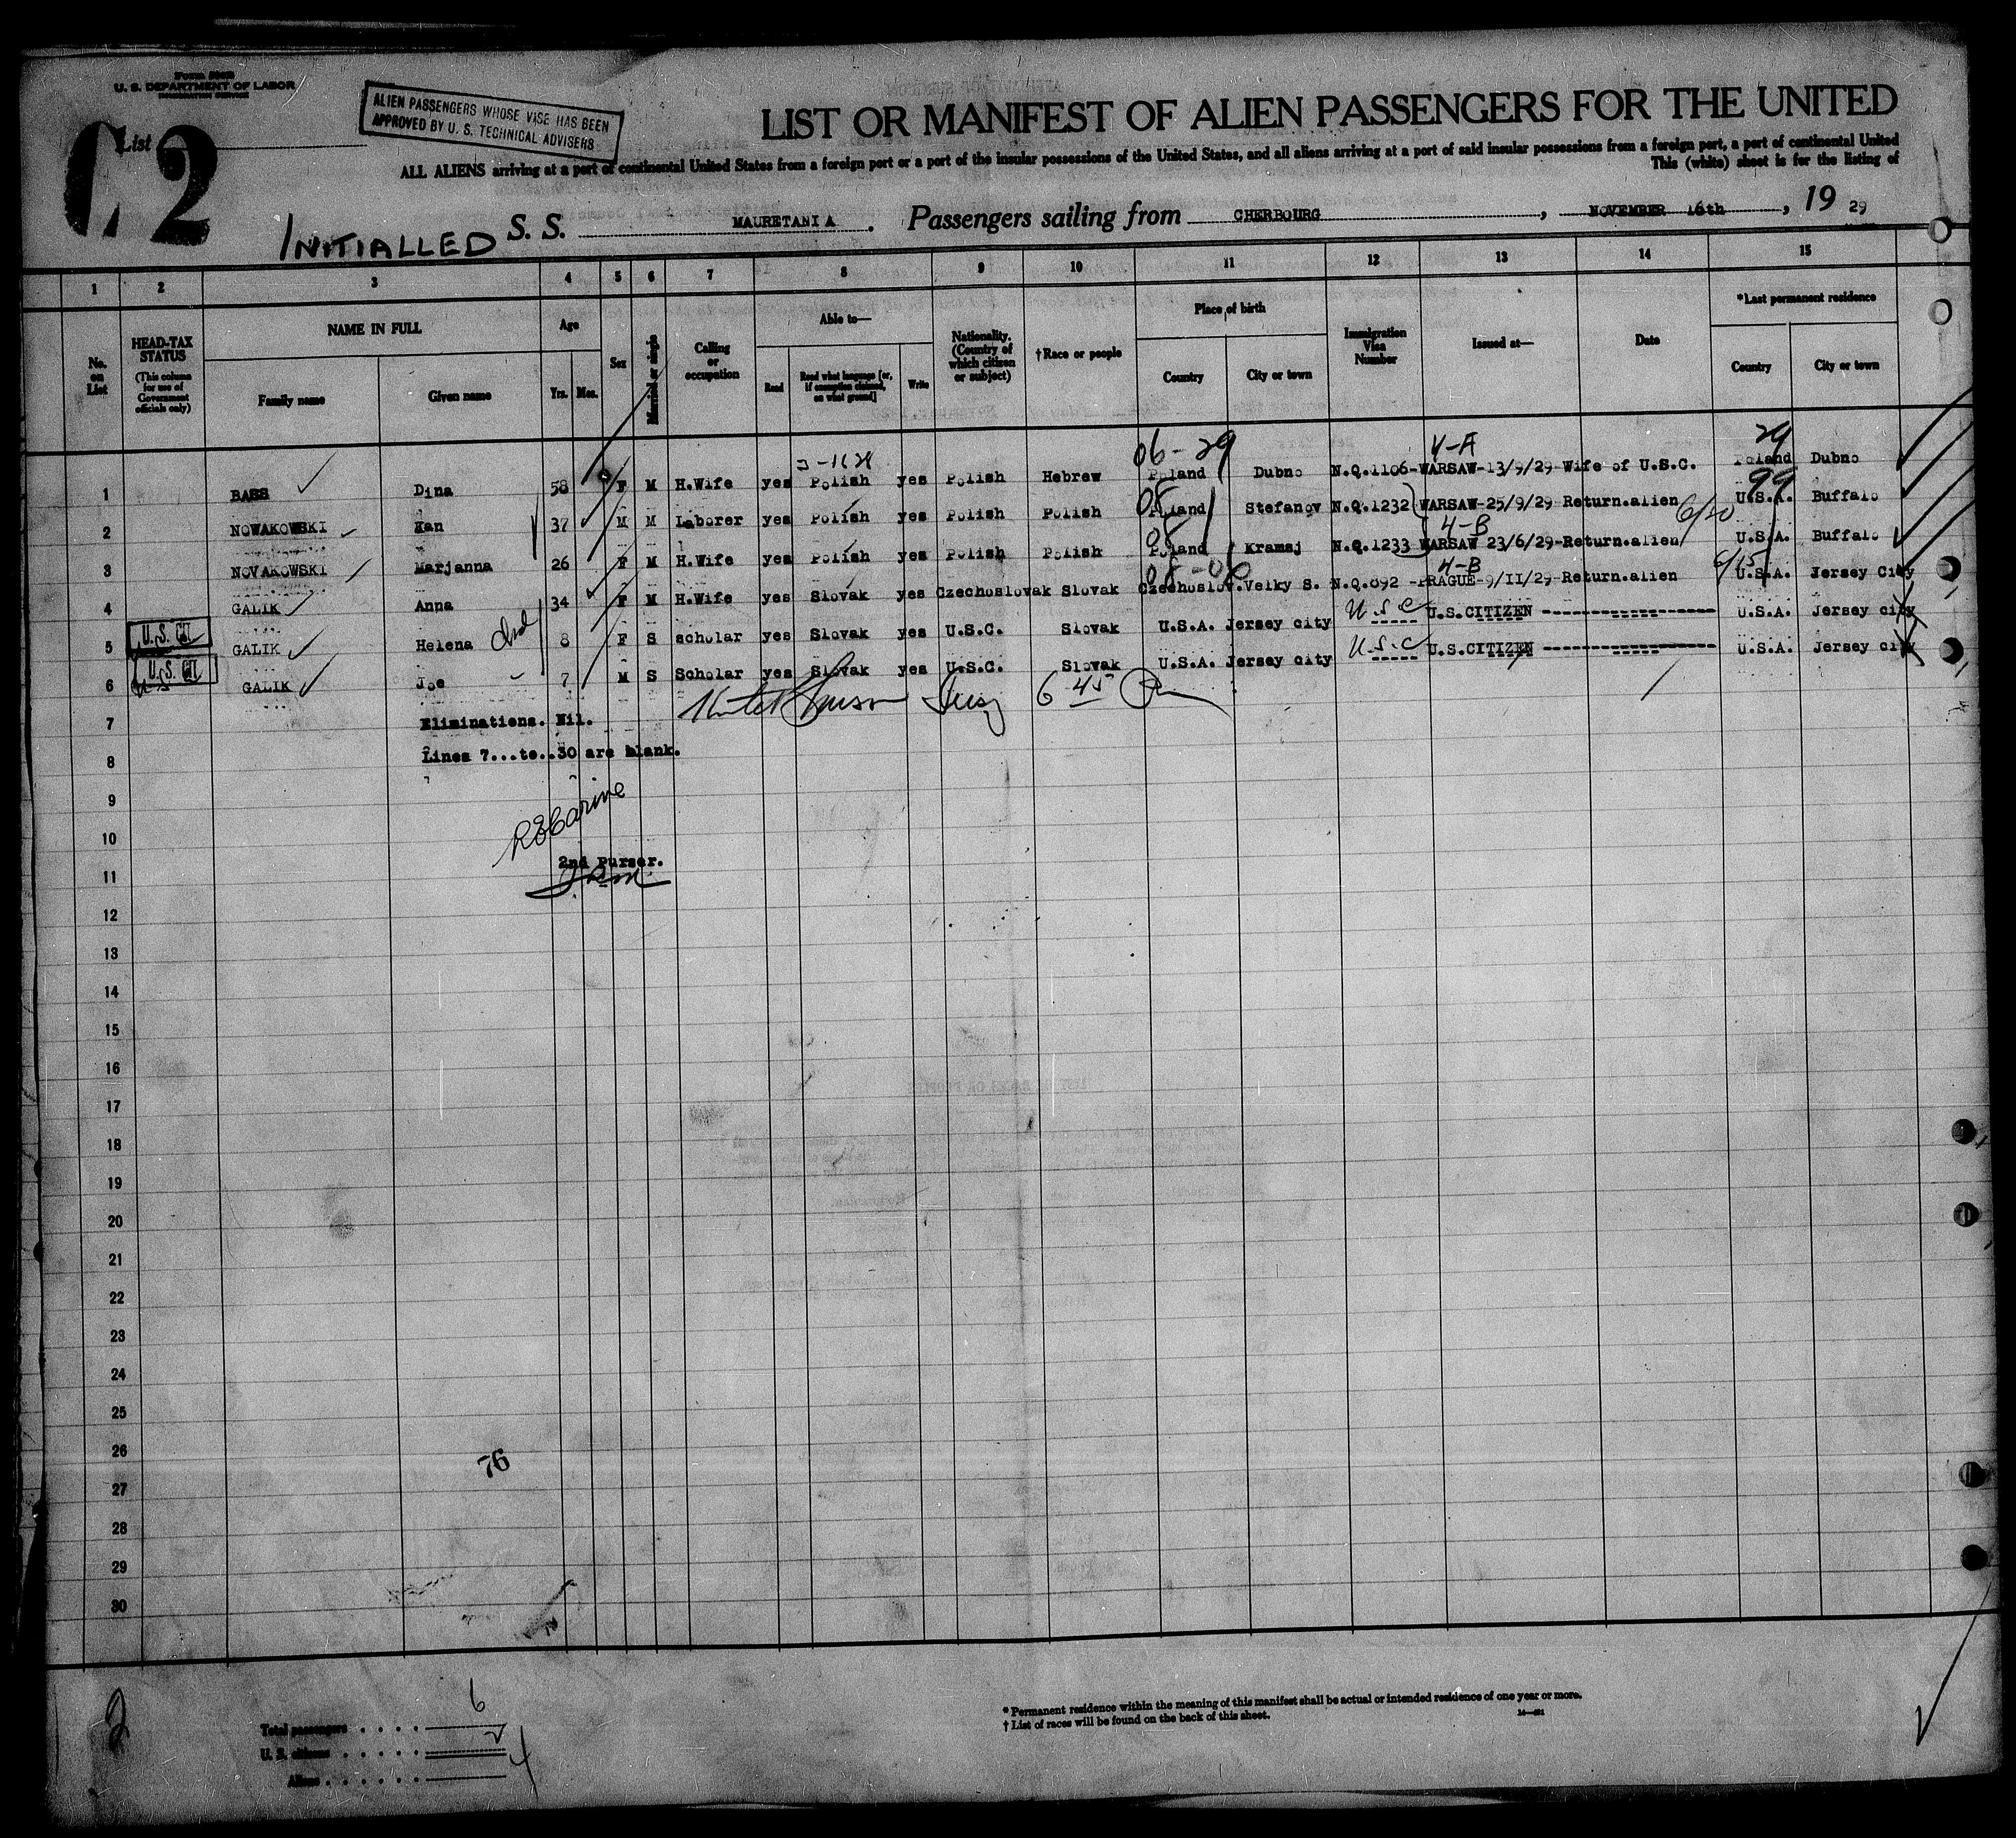 U. S. DEPARTMENT OF LABOR
IMMIGRATION SERVICE
List
2
ALIEN PASSENGERS WHOSE VISE HAS BEEN
APPROVED BY U. S. TECHNICAL ADVISERS
LIST OR MANIFEST OF ALIEN PASSENGERS FOR THE UNITED
ALL ALIENS arriving at a port of continental United States from a foreign port or a port of the insular possessions of the United States, and all aliens arriving at a port of said insular possessions from a foreign port, a port of continental United
This (white) sheet is for the listing of
INITIALLED S. S. MAURETANIA . Passengers sailing from CHERBOURG , NOVEMBER 16th , 19 29
1 2 3 4 5 6 7 8 9 10 11 12 13 14 15
No. on List
HEAD-TAX STATUS (This column for use of Government officials only)
NAME IN FULL
Family name
Given name
Age
Yrs. Mos.
Sex
Married or single
Calling or occupation
Able to—
Read
Read what language [or, if exemption claimed, on what ground]
Write
Nationality. (Country of which citizen or subject)
†Race or people
Place of birth
Country
City or town
Immigration Visa Number
Issued at—
Date
*Last permanent residence
Country
City or town
06-29 V-A 29
1 BASS Dina 58 F M H.Wife yes Polish yes Polish Hebrew Poland Dubno N.Q.1106-WARSAW-13/9/29-Wife of U.S.C. Poland Dubno
99
2 NOWAKOWSKI 37 M M Laborer yes Polish yes Polish Polish Poland Stefanov N.Q.1232 WARSAW-25/9/29 Return.alien U.S.A. Buffalo
4-B
3 NOVAKOWSKI Marjanna 26 F M H.Wife yes Polish yes Polish Polish Poland Kramsj N.Q.1233 WARSAW 23/6/29-Return.alien U.S.A. Buffalo
4-B
4 GALIK Anna 34 F M H.Wife yes Slovak yes Czechoslovak Slovak Czechoslov. Velky S. N.Q.892 -PRAGUE-9/11/29-Return.alien U.S.A. Jersey City
5 U.S. CIT GALIK Helena 8 F S scholar yes Slovak yes U.S.C. Slovak U.S.A. Jersey city U.S.C U.S.CITIZEN U.S.A. Jersey city
6 U.S. CIT GALIK Joe 7 M S Scholar yes Slovak yes U.S.C. Slovak U.S.A. Jersey city U.S.C U.S.CITIZEN U.S.A. Jersey city
7 Eliminations. Nil. 6 45
8 Lines 7...to..30 are blank.
9
10
11 2nd Purser.
12
13
14
15
16
17
18
19
20
21
22
23
24
25
26 76
27
28
29
30
2
Total passengers . . . . 6
U. S. citizens . . . . . 2
Aliens . . . . . . 4
* Permanent residence within the meaning of this manifest shall be actual or intended residence of one year or more.
† List of races will be found on the back of this sheet.